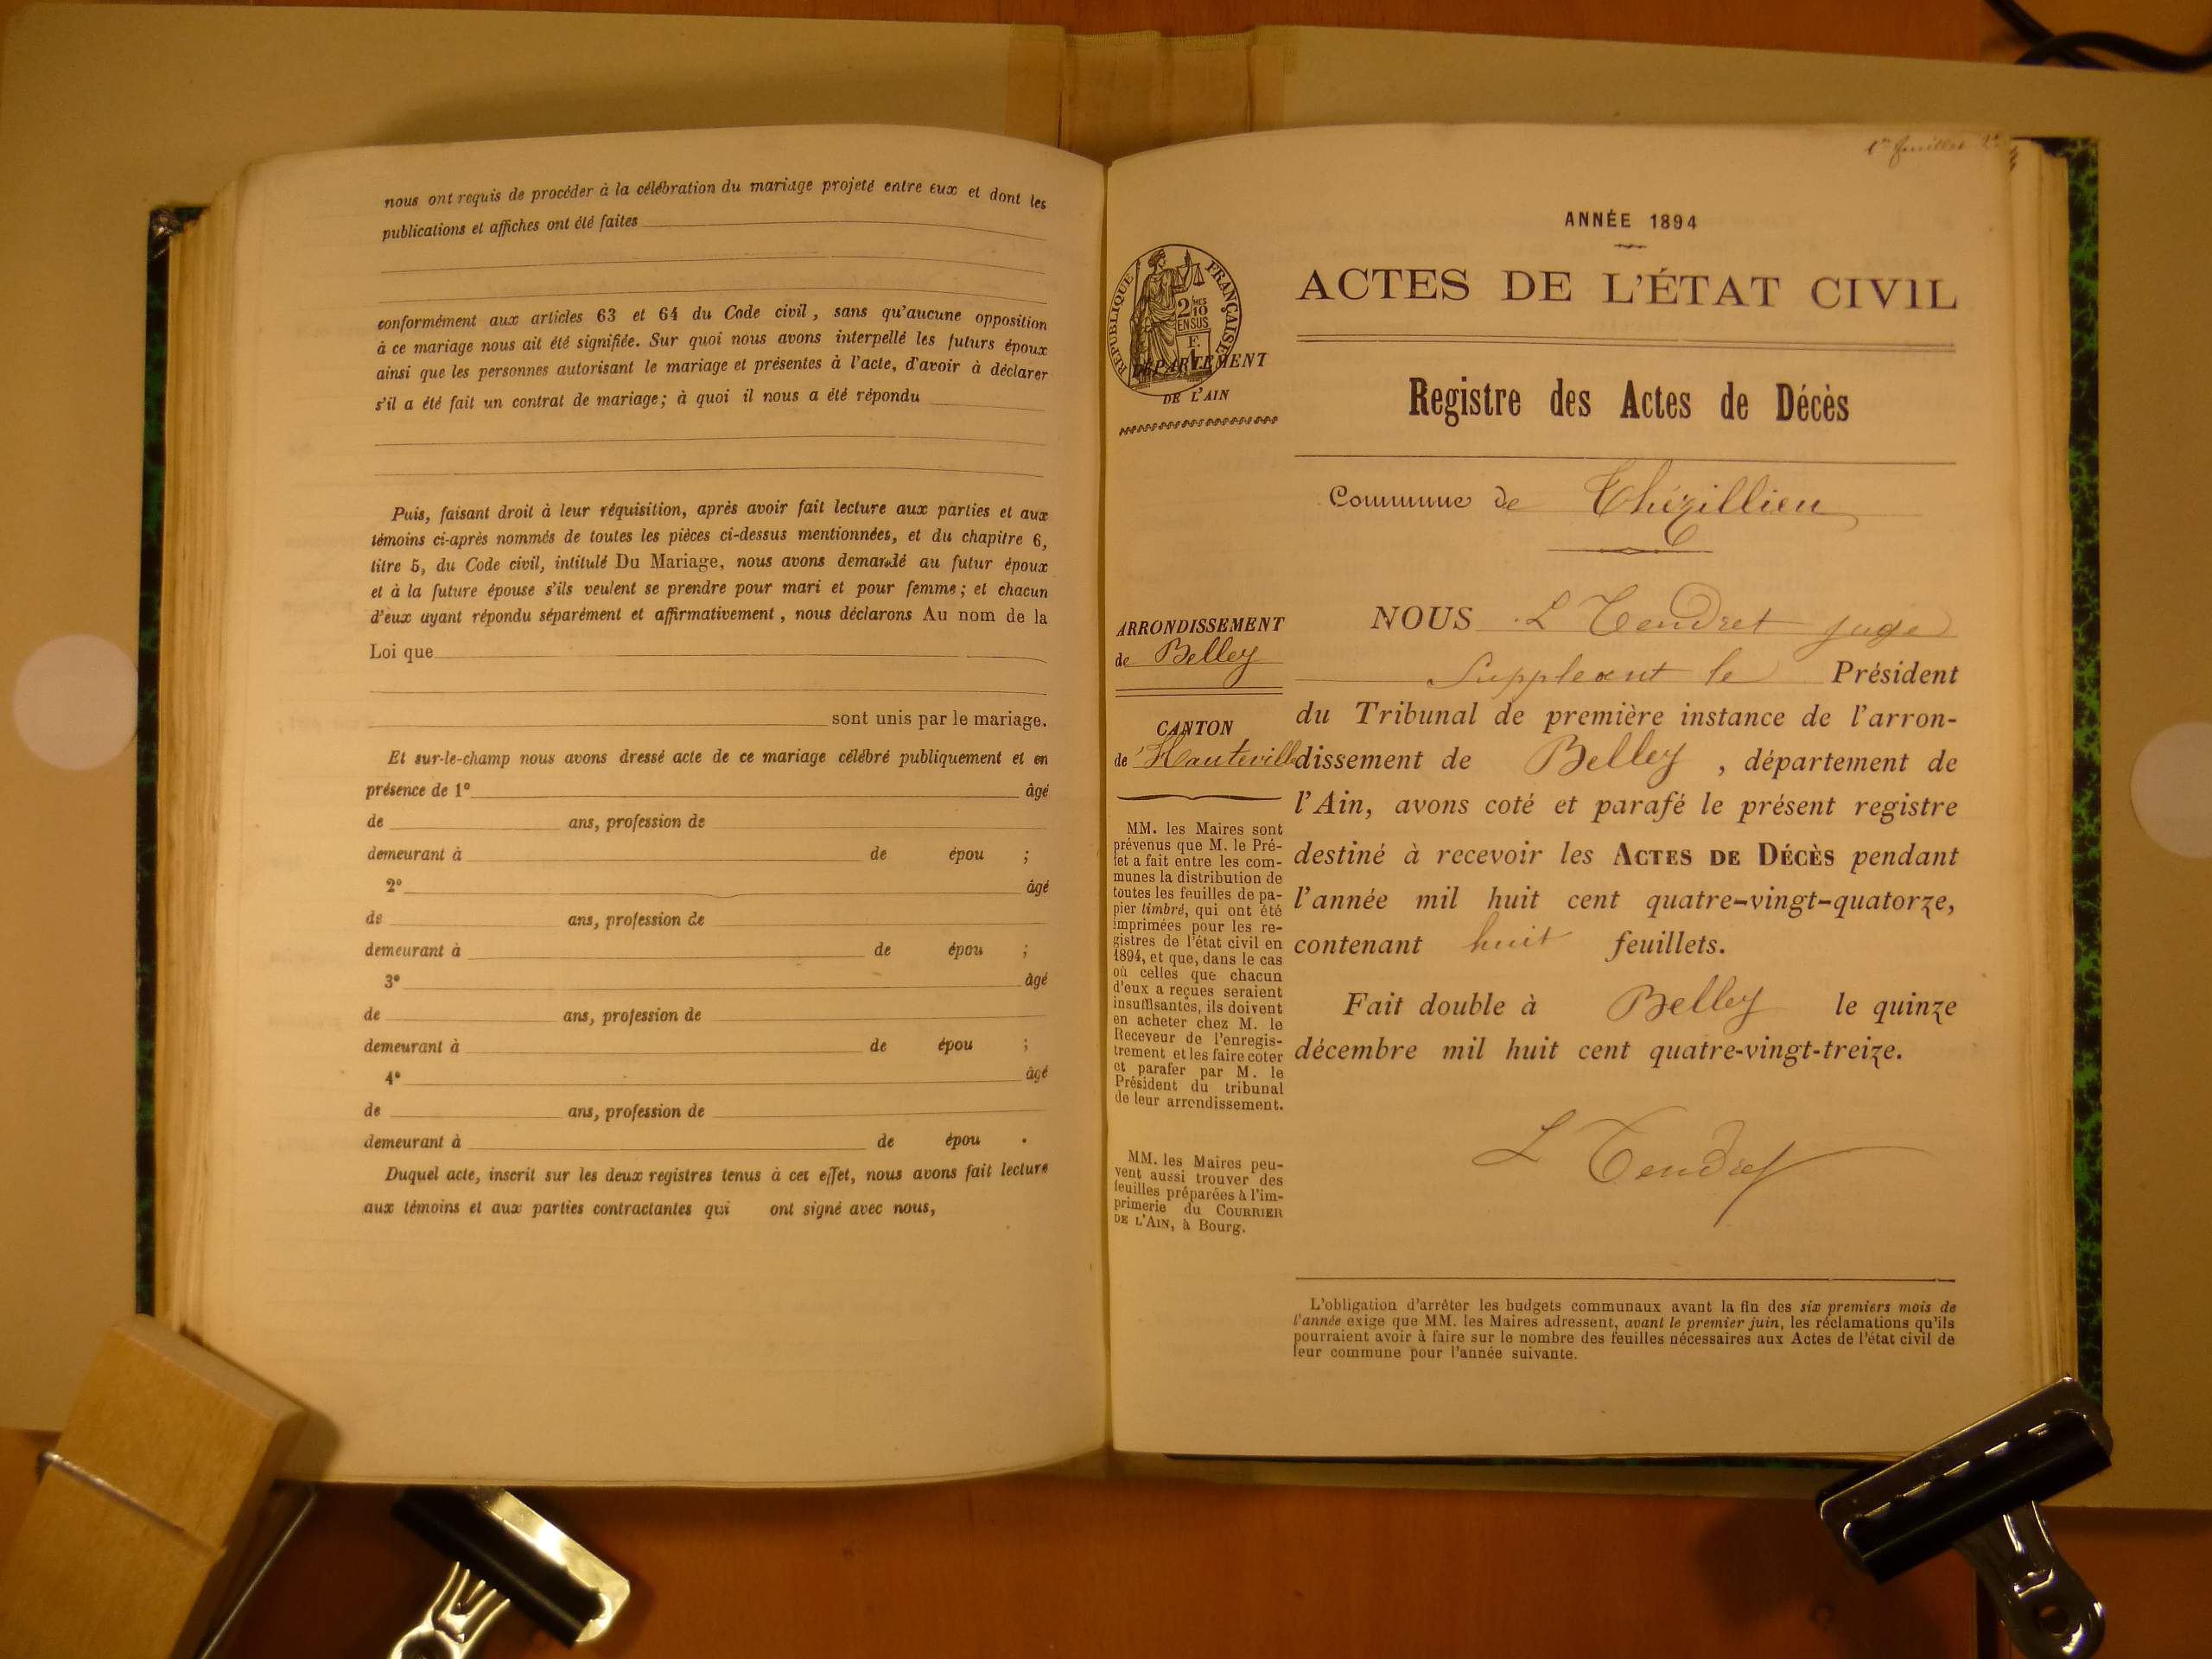 nous ont requis de procéder à la célébration du mariage projeté entre eux et dont les
publications et affiches ont été faites
conformément aux articles 63 et 64 du Code civil, sans qu'aucune opposition
à ce mariage nous ait été signifiée. Sur quoi nous avons interpellé les futurs époux
ainsi que les personnes autorisant le mariage et présentes à l'acte, d'avoir à déclarer
s'il a été fait un contrat de mariage; à quoi il nous a été répondu
Puis, faisant droit à leur réquisition, après avoir fait lecture aux parties et aux
témoins ci-après nommés de toutes les pièces ci-dessus mentionnées, et du chapitre 6,
titre 5, du Code civil, intitulé Du Mariage, nous avons demandé au futur époux
et à la future épouse s'ils veulent se prendre pour mari et pour femme; et chacun
d'eux ayant répondu séparément et affirmativement, nous déclarons Au nom de la
Loi que
sont unis par le mariage.
Et sur-le-champ nous avons dressé acte de ce mariage célébré publiquement et en
présence de 1° âgé
de ans, profession de
demeurant à de épou ;
2° âgé
de ans, profession de
demeurant à de épou ;
3° âgé
de ans, profession de
demeurant à de épou ;
4° âgé
de ans, profession de
demeurant à de épou .
Duquel acte, inscrit sur les deux registres tenus à cet effet, nous avons fait lecture
aux témoins et aux parties contractantes qui ont signé avec nous,
RÉPUBLIQUE FRANÇAISE
2/10
EN SUS
DÉPARTEMENT
DE L'AIN
ARRONDISSEMENT
de Belley
CANTON
de Hauteville
MM. les Maires sont
prévenus que M. le Pré-
fet a fait entre les com-
munes la distribution de
toutes les feuilles de pa-
pier timbré, qui ont été
imprimées pour les re-
gistres de l'état civil en
1894, et que, dans le cas
où celles que chacun
d'eux a reçues seraient
insuffisantes, ils doivent
en acheter chez M. le
Receveur de l'enregis-
trement et les faire coter
et parafer par M. le
Président du tribunal
de leur arrondissement.
MM. les Maires peu-
vent aussi trouver des
feuilles préparées à l'im-
primerie du COURRIER
DE L'AIN, à Bourg.
ANNÉE 1894
ACTES DE L'ÉTAT CIVIL
Registre des Actes de Décès
Commune de Thézillieu
NOUS L Tendret juge
Suppleant le Président
du Tribunal de première instance de l'arron-
dissement de Belley, département de
l'Ain, avons coté et parafé le présent registre
destiné à recevoir les ACTES DE DÉCÈS pendant
l'année mil huit cent quatre-vingt-quatorze,
contenant huit feuillets.
Fait double à Belley le quinze
décembre mil huit cent quatre-vingt-treize.
L Tendret
L'obligation d'arrêter les budgets communaux avant la fin des six premiers mois de
l'année exige que MM. les Maires adressent, avant le premier juin, les réclamations qu'ils
pourraient avoir à faire sur le nombre des feuilles nécessaires aux Actes de l'état civil de
leur commune pour l'année suivante.